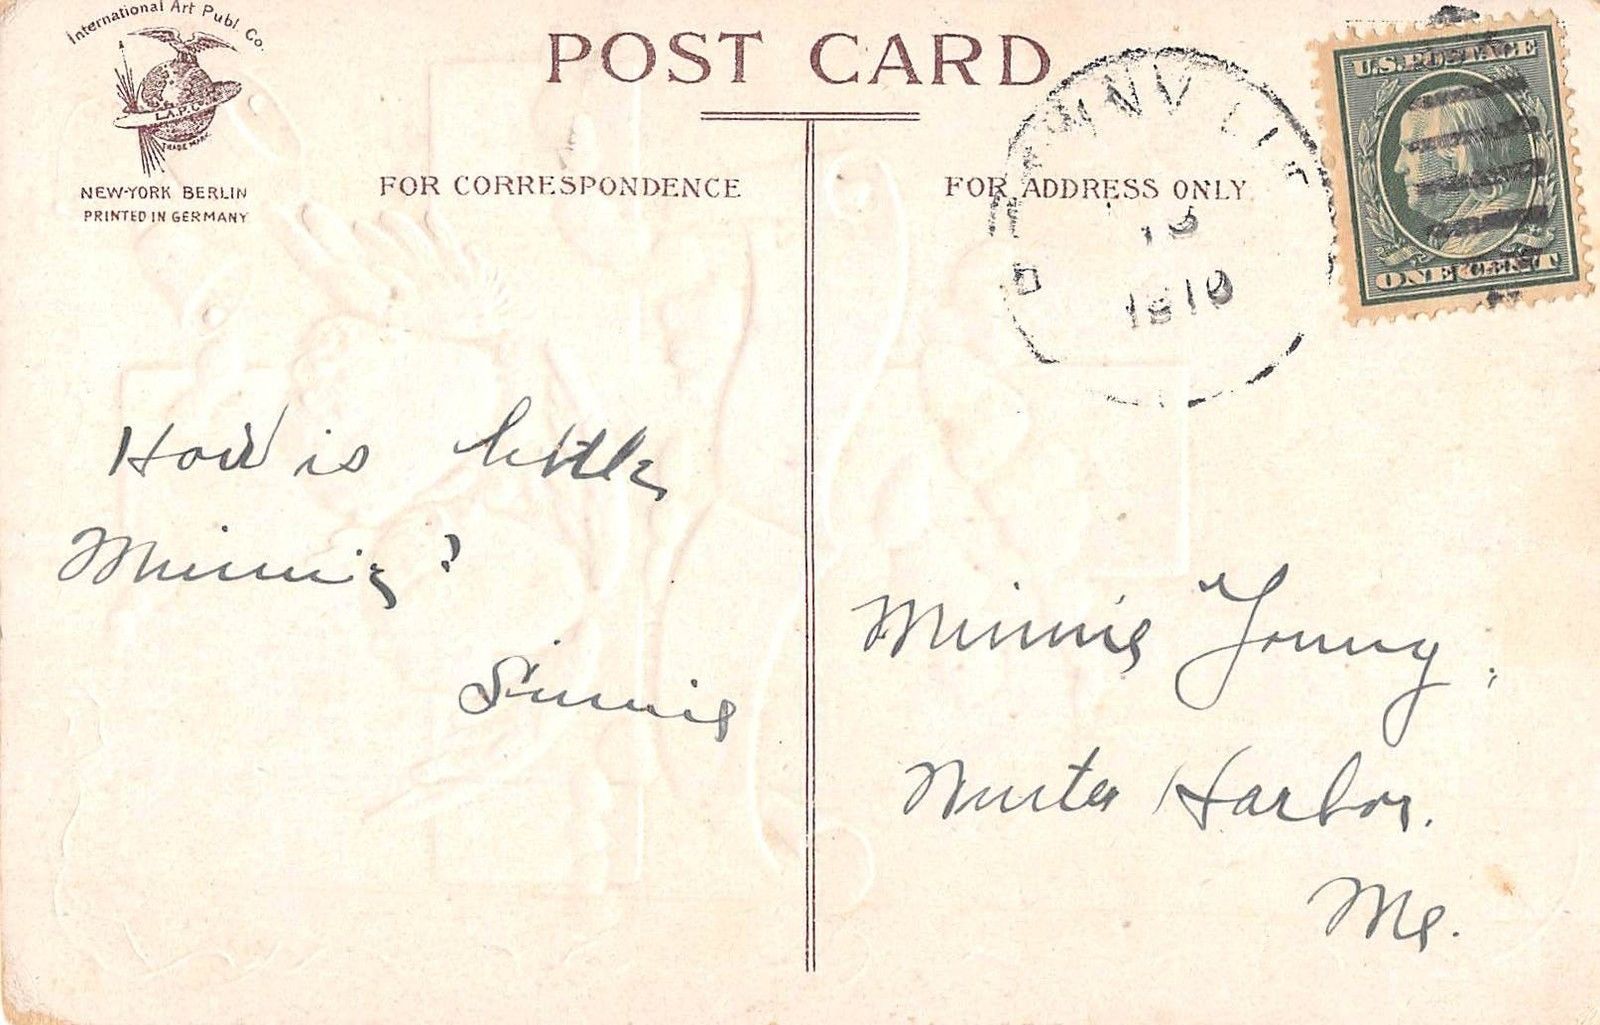 International Art Publ. Co.
I.A.P.Co.
TRADE MARK
NEW-YORK BERLIN
PRINTED IN GERMANY
POST CARD
FOR CORRESPONDENCE
FOR ADDRESS ONLY
1910
U.S. POSTAGE
ONE CENT
How is little
Minnie?
Minnie Young.
Winter Harbor.
Me.